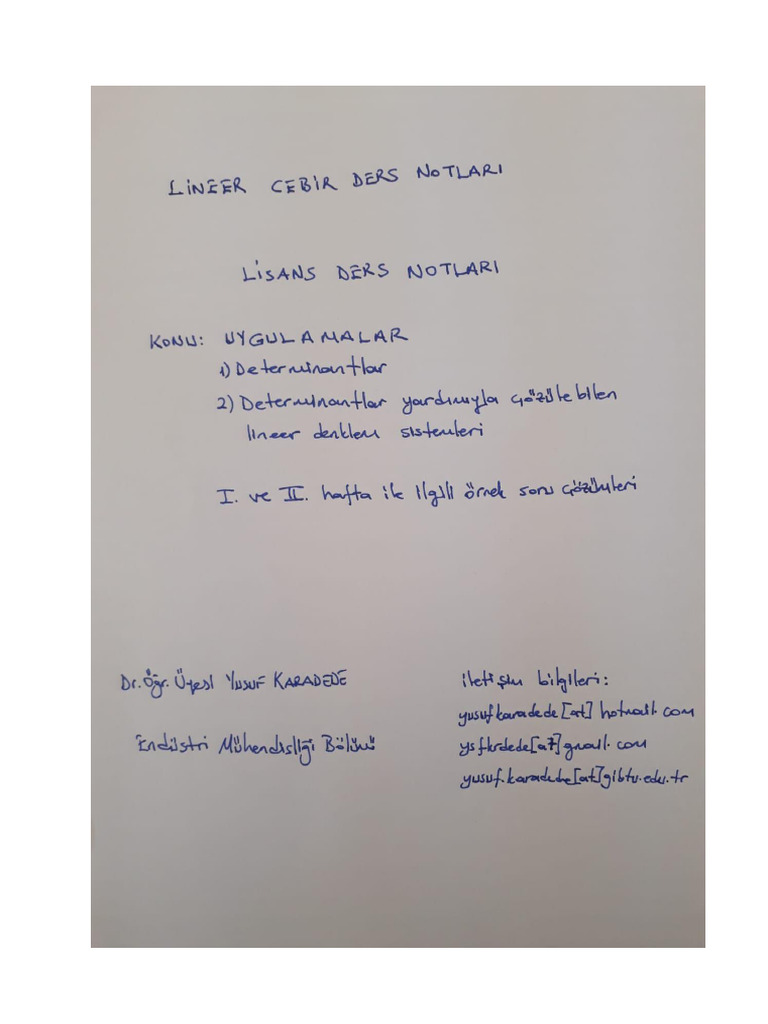 LİNEER CEBİR DERS NOTLARI
LİSANS DERS NOTLARI
KONU: UYGULAMALAR
1) Determinantlar
2) Determinantlar yardımıyla çözülebilen
lineer denklem sistemleri
I. ve II. hafta ile ilgili örnek soru çözümleri
Dr. Öğr. Üyesi YUSUF KARADEDE
Endüstri Mühendisliği Bölümü
iletişim bilgileri:
yusufkaradede[at]hotmail.com
ysfkrdede[at]gmail.com
yusuf.karadede[at]gibtu.edu.tr